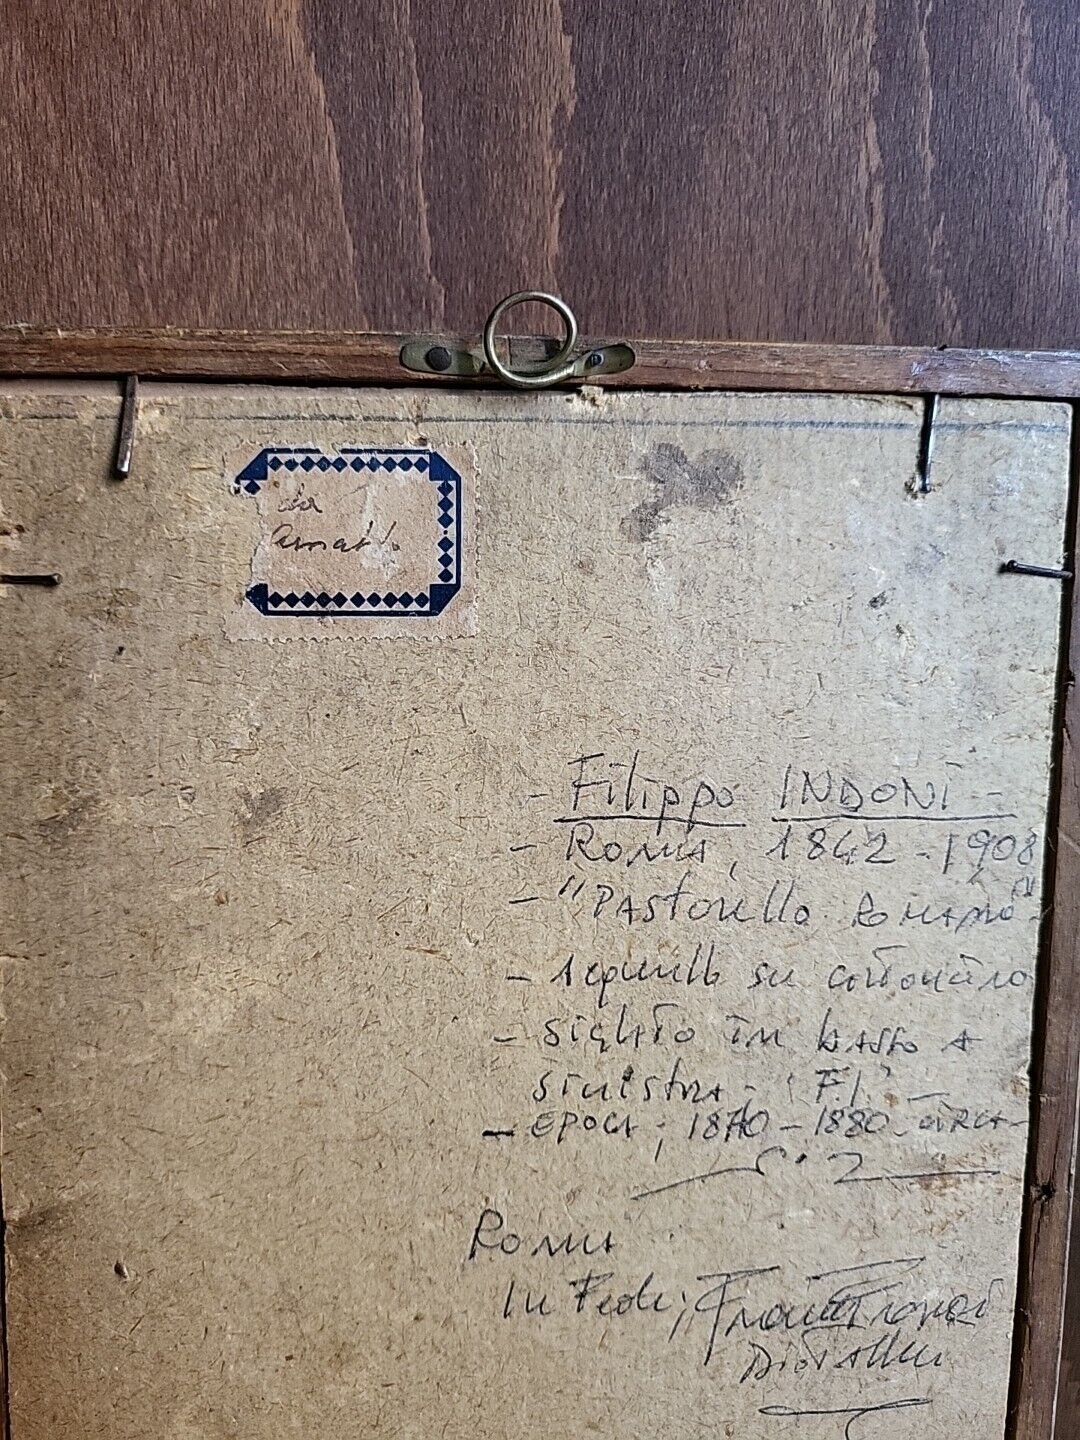 da
- Filippo INDONI -
- ROMA, 1842 - 1908
- "PASTORELLO ROMANO"
- Acquerello su cartoncino
- Siglato in basso a
sinistra: "F.I." -
- EPOCA: 1870 - 1880 CIRCA -
Roma
In Fede;